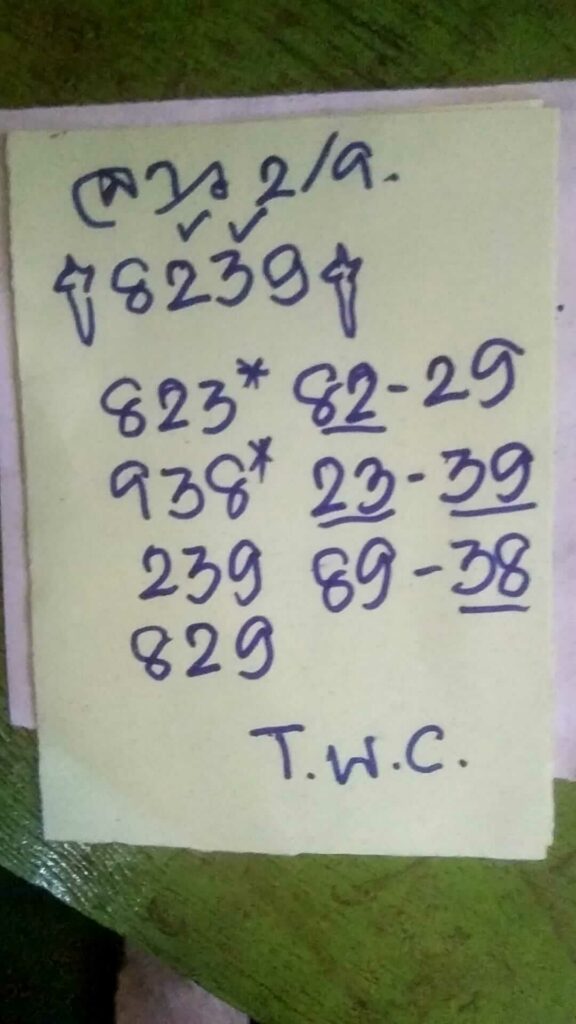 ลาว 2/9.
8239
823* 82-29
938* 23-39
239 89-38
829
T.W.C.